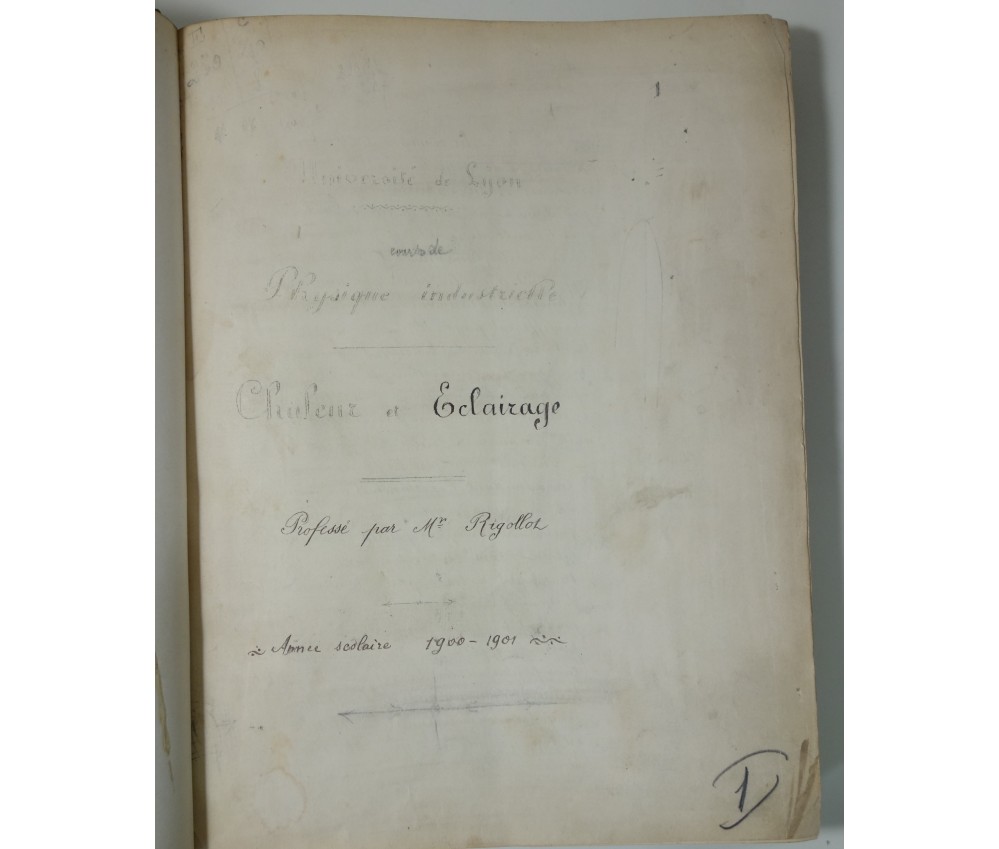 1
Université de Lyon
cours de
Physique industrielle
Chaleur et Eclairage
Professé par Mr Rigollot
Année scolaire 1900-1901
1